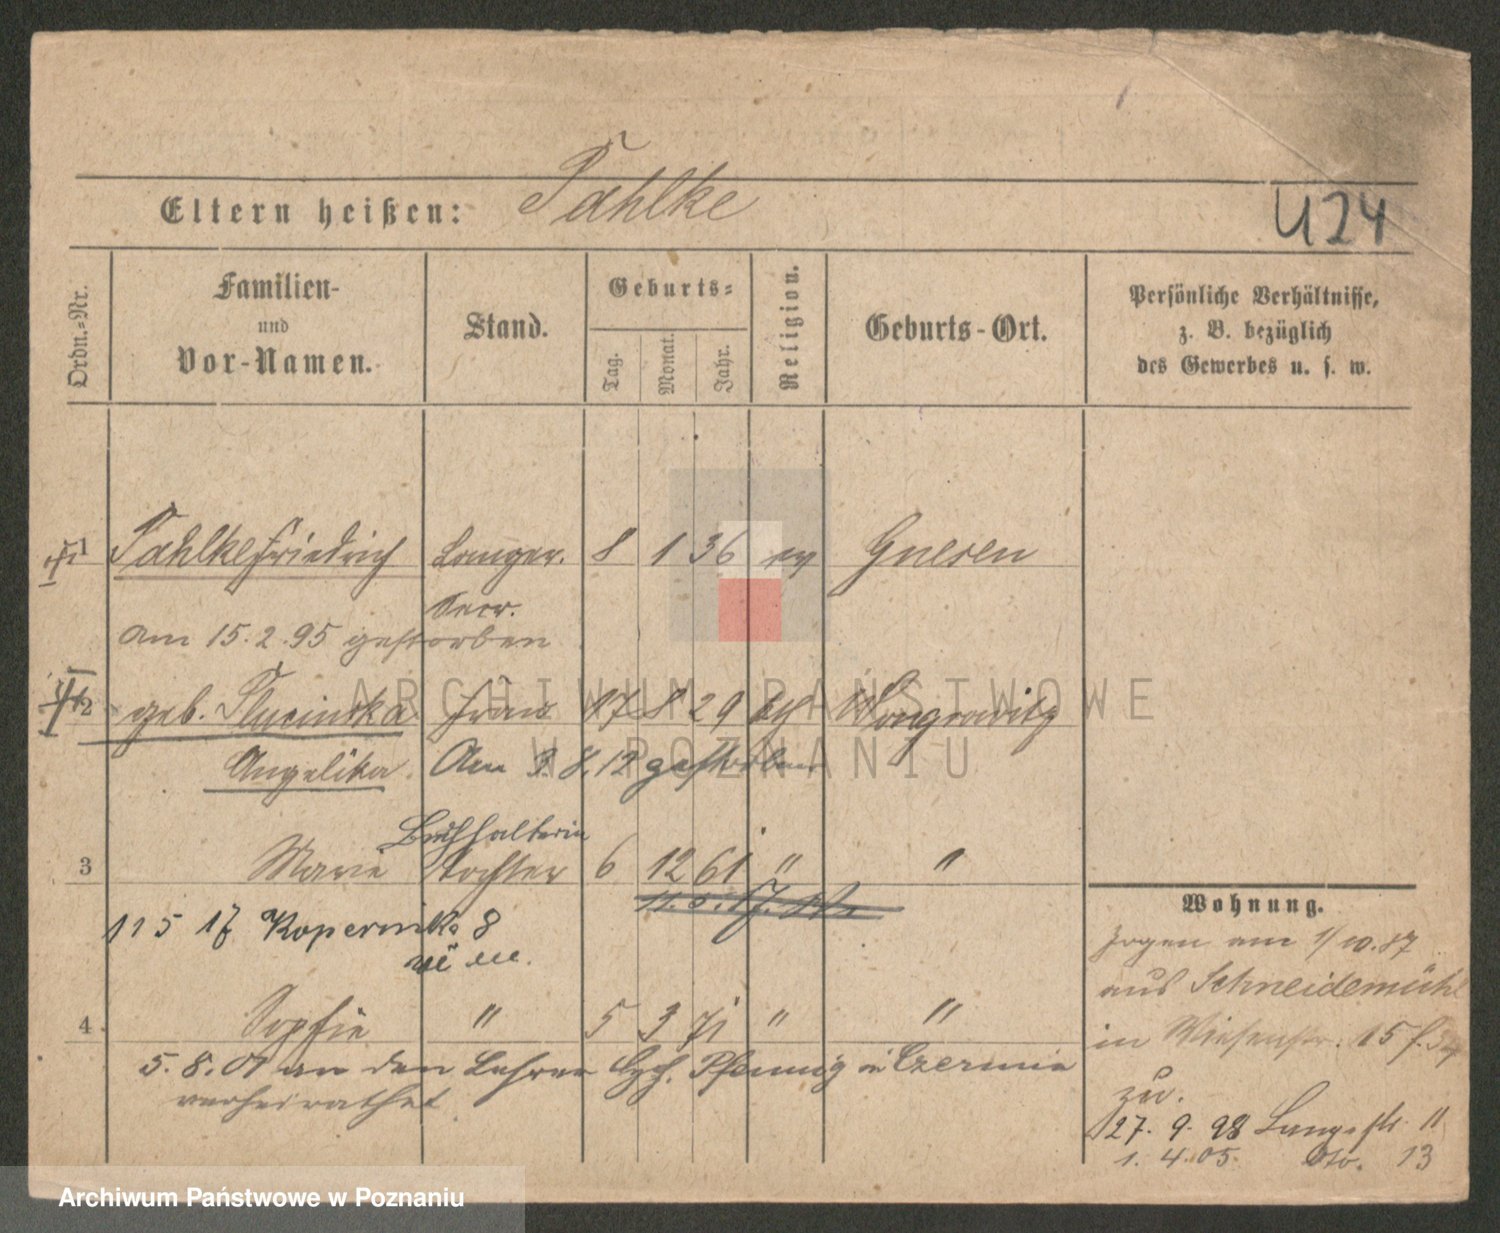 Eltern heißen: Tahlke
U24
Ordn.-Nr.
Familien-
und
Vor-Namen.
Stand.
Geburts-
Tag. Monat. Jahr.
Religion.
Geburts-Ort.
Persönliche Verhältnisse,
z. B. bezüglich
des Gewerbes u. s. w.
1 Tahlke Friedrich 8 1 36 ev Gnesen
Secr.
am 15.2.95 gestorben
2 geb. Plucinska Frau 17 8 29 Wongrowitz
Angelika. Am 3.8.12 gestorben
ARCHIWUM PAŃSTWOWE
W POZNANIU
Buchhalterin
3 Marie Tochter 6 12 61 " "
11 5 17 Kopernik 8
4 Sophie " 5 3 71 " "
5.8.01 an den Lehrer Pfennig in Czermin
verheirathet
Wohnung.
Zogen am 1/10.87
aus Schneidemühl
in Wiesenstr. 15
zu.
27.9.98 Langestr. 11
1.4.05. dto. 13
Archiwum Państwowe w Poznaniu